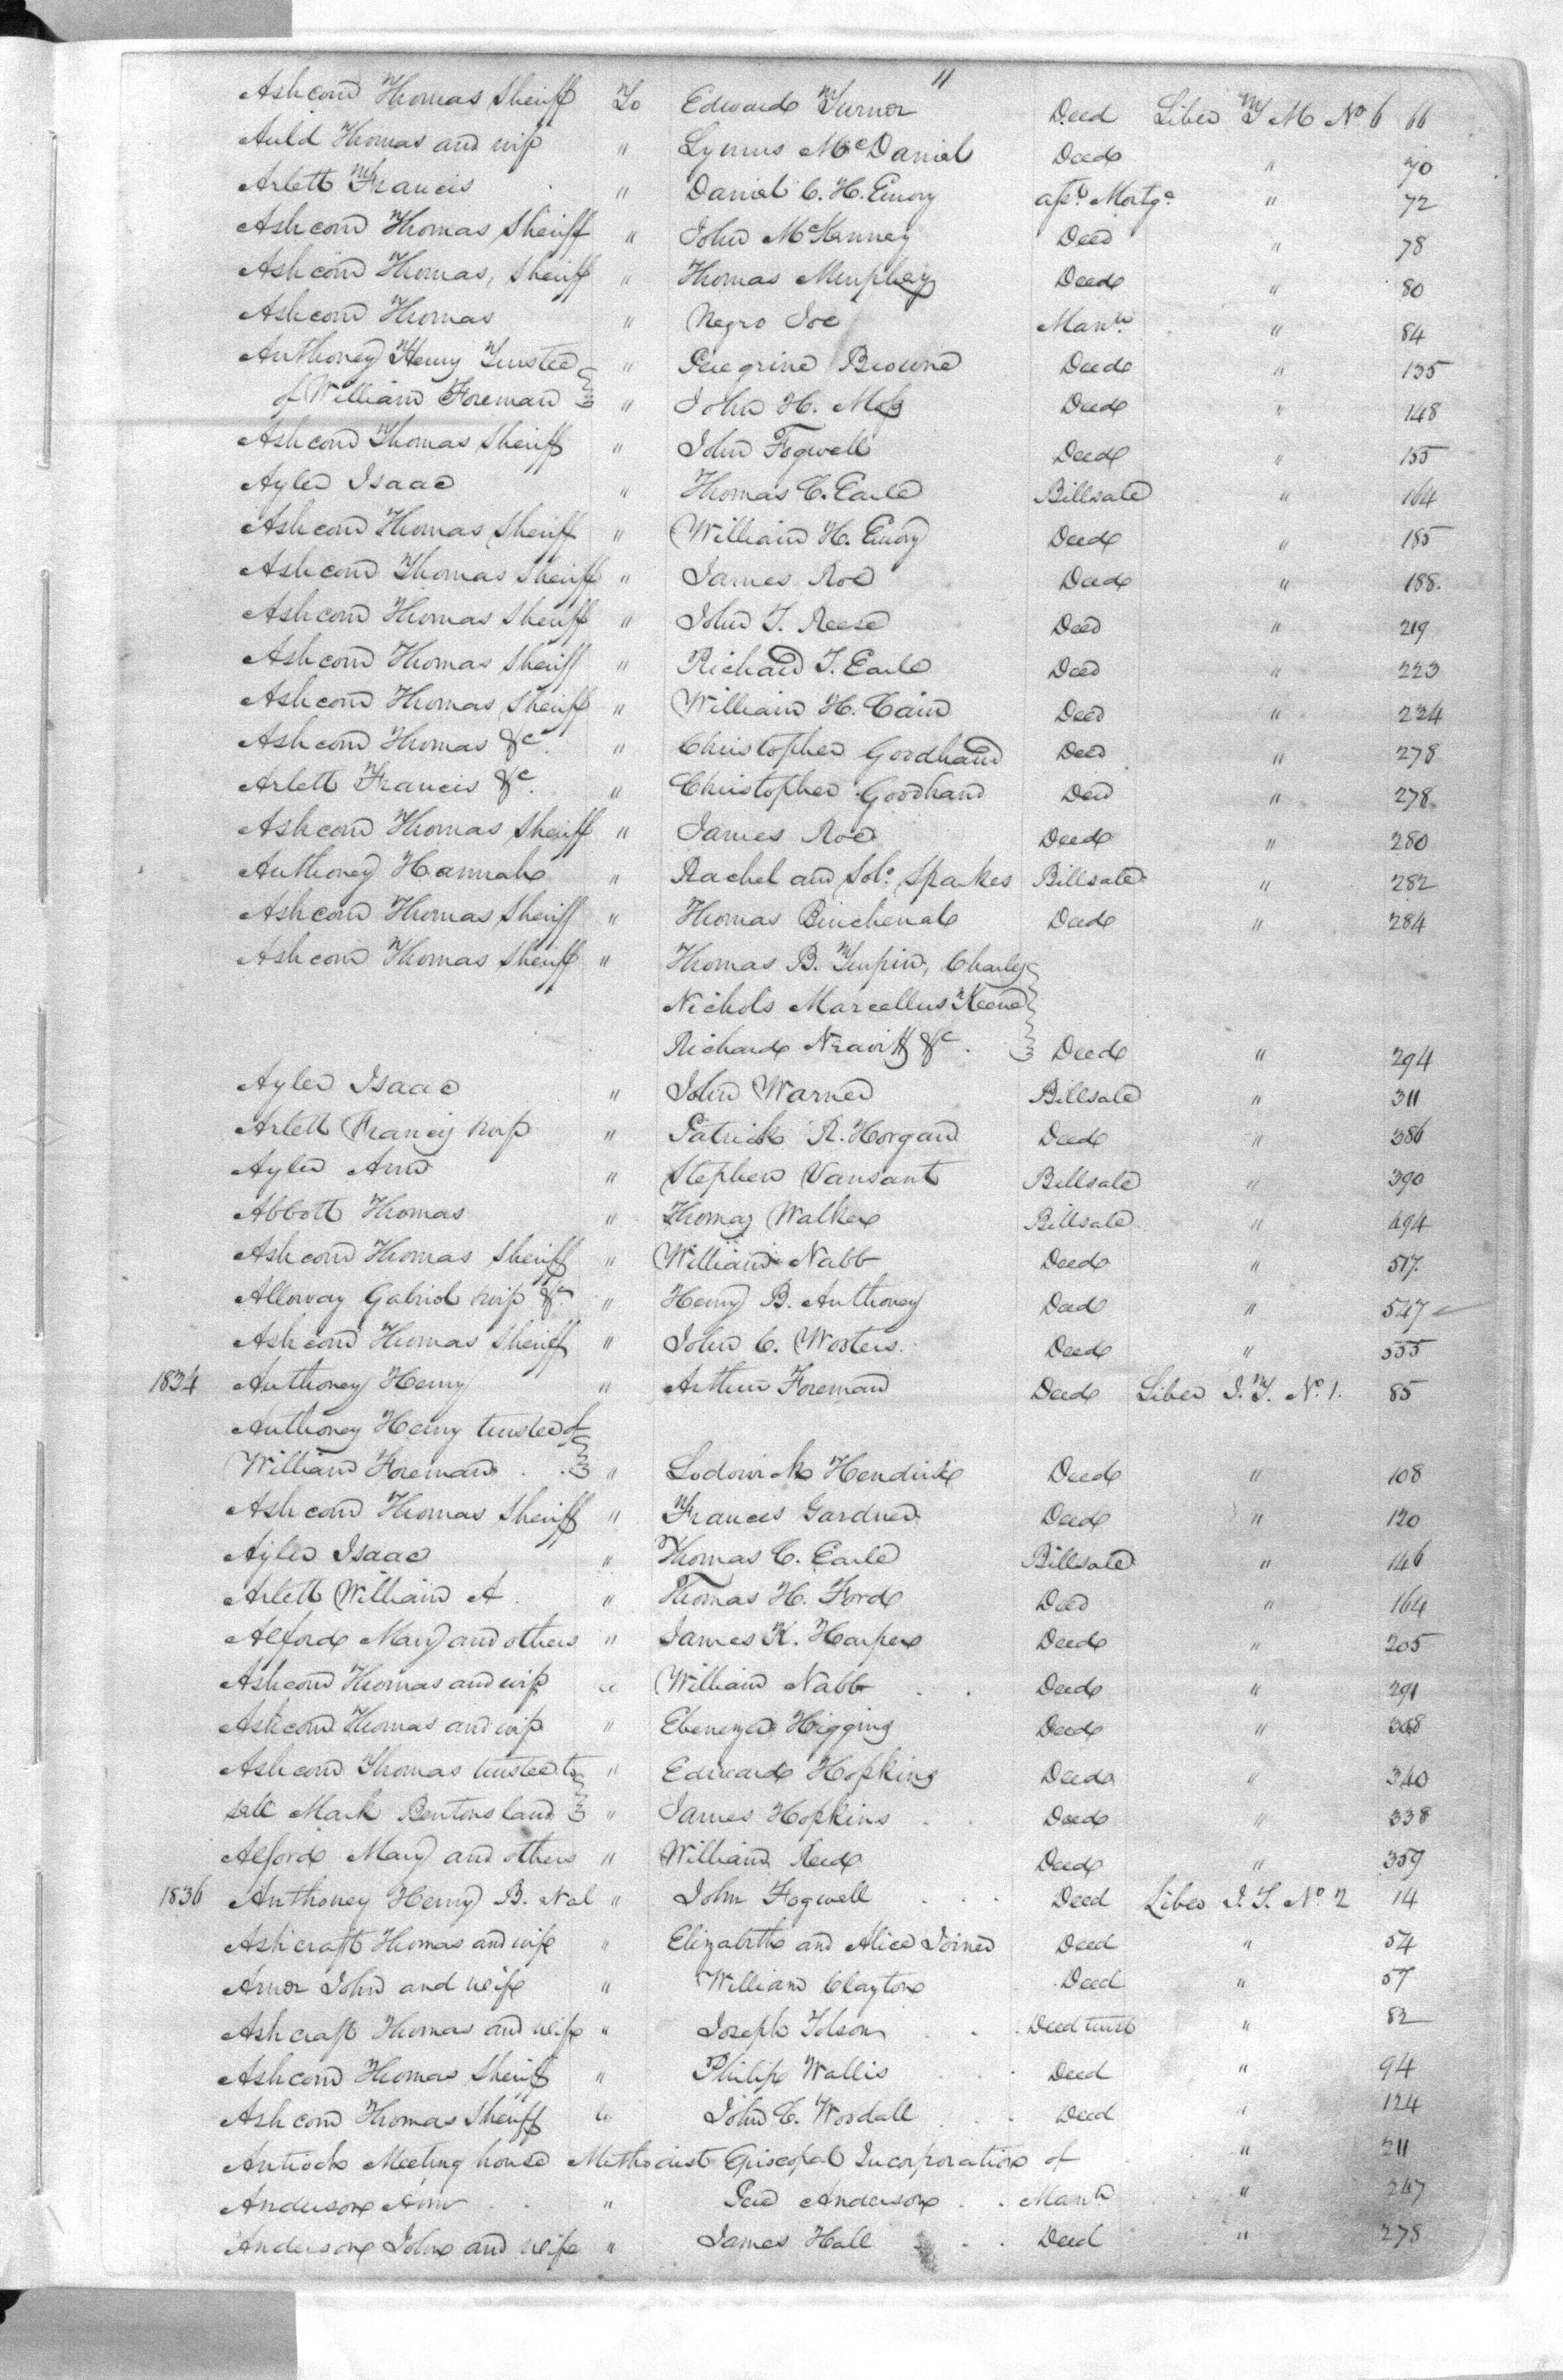 11
Ashcom Thomas Sheriff To Edward Turner Deed Liber T M No. 6 66
Auld Thomas and wife " Lynus McDaniel Deed " 70
Arlett Francis " Daniel C. H. Emory Mortge. " 72
Ashcom Thomas Sheriff " John McKenney Deed " 78
Ashcom Thomas, Sheriff " Thomas Murphey Deed " 80
Ashcom Thomas " Negro Joe Mann. " 84
Anthoney Henry Trustee " Peregrine Browne Deed " 135
of William Foreman " John H. Moss Deed " 148
Ashcom Thomas Sheriff " John Fogwell Deed " 155
Ayler Isaac " Thomas C. Earle Billsale " 164
Ashcom Thomas Sheriff " William H. Emory Deed " 185
Ashcom Thomas Sheriff " James Roe Deed " 188.
Ashcom Thomas Sheriff " John T. Reese Deed " 219
Ashcom Thomas Sheriff " Richard T. Earle Deed " 223
Ashcom Thomas Sheriff " William H. Cain Deed " 224
Ashcom Thomas &c. " Christopher Goodhand Deed " 278
Arlett Francis &c. " Christopher Goodhand Deed " 278
Ashcom Thomas Sheriff " James Roe Deed " 280
Anthoney Hannah " Rachel and Solo. Sparkes Billsale " 282
Ashcom Thomas Sheriff " Thomas Burchenal Deed " 284
Ashcom Thomas Sheriff " Thomas B. Turpin, Charles
Nichols Marcellus Keene
Richard &c. Deed " 294
Ayler Isaac " John Warner Billsale " 311
Arlett Francis & wife " Patrick R. Horgan Deed " 386
Ayler Ann " Stephen Vansant Billsale " 390
Abbott Thomas " Thomas Walker Billsale " 494
Ashcom Thomas Sheriff " William Nabb Deed " 517.
Alloway Gabriel & wife &c. " Henry B. Anthoney Deed " 547
Ashcom Thomas Sheriff " John C. Wosters Deed " 555
1834 Anthoney Henry " Arthur Foreman Deed Liber J. T. No. 1. 85
Anthoney Henry trustee of
William Foreman " Lodowick Hendrix Deed " 108
Ashcom Thomas Sheriff " Frances Gardner Deed " 120
Ayler Isaac " Thomas C. Earle Billsale " 146
Arlett William A. " Thomas H. Ford Deed " 164
Alford Mary and others " James K. Harper Deed " 205
Ashcom Thomas and wife " William Nabb Deed " 291
Ashcom Thomas and wife " Ebenezer Higgins Deed " 308
Ashcom Thomas trustee to " Edward Hopkins Deed " 340
sell Mark Bentons land " James Hopkins Deed " 338
Alford Mary and others " William Reed Deed " 359
1836 Anthoney Henry B. et al " John Fogwell Deed Liber J. T. No. 2 14
Ashcraft Thomas and wife " Elizabeth and Alice Joiner Deed " 54
Amor John and wife " William Clayton Deed " 57
Ashcraft Thomas and wife " Joseph Tolson Deed trust " 82
Ashcom Thomas Sheriff " Philip Wallis Deed " 94
Ashcom Thomas Sheriff " John C. Woodall Deed " 124
Antioch Meeting house Methodist Episcopal Incorporation of " 211
Anderson Ann " Pere Anderson Mann. " 247
Anderson John and wife " James Hall Deed " 278